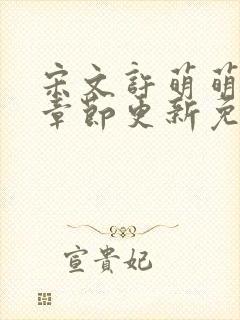 宋文許萌萌
章節更新免
宣貴妃